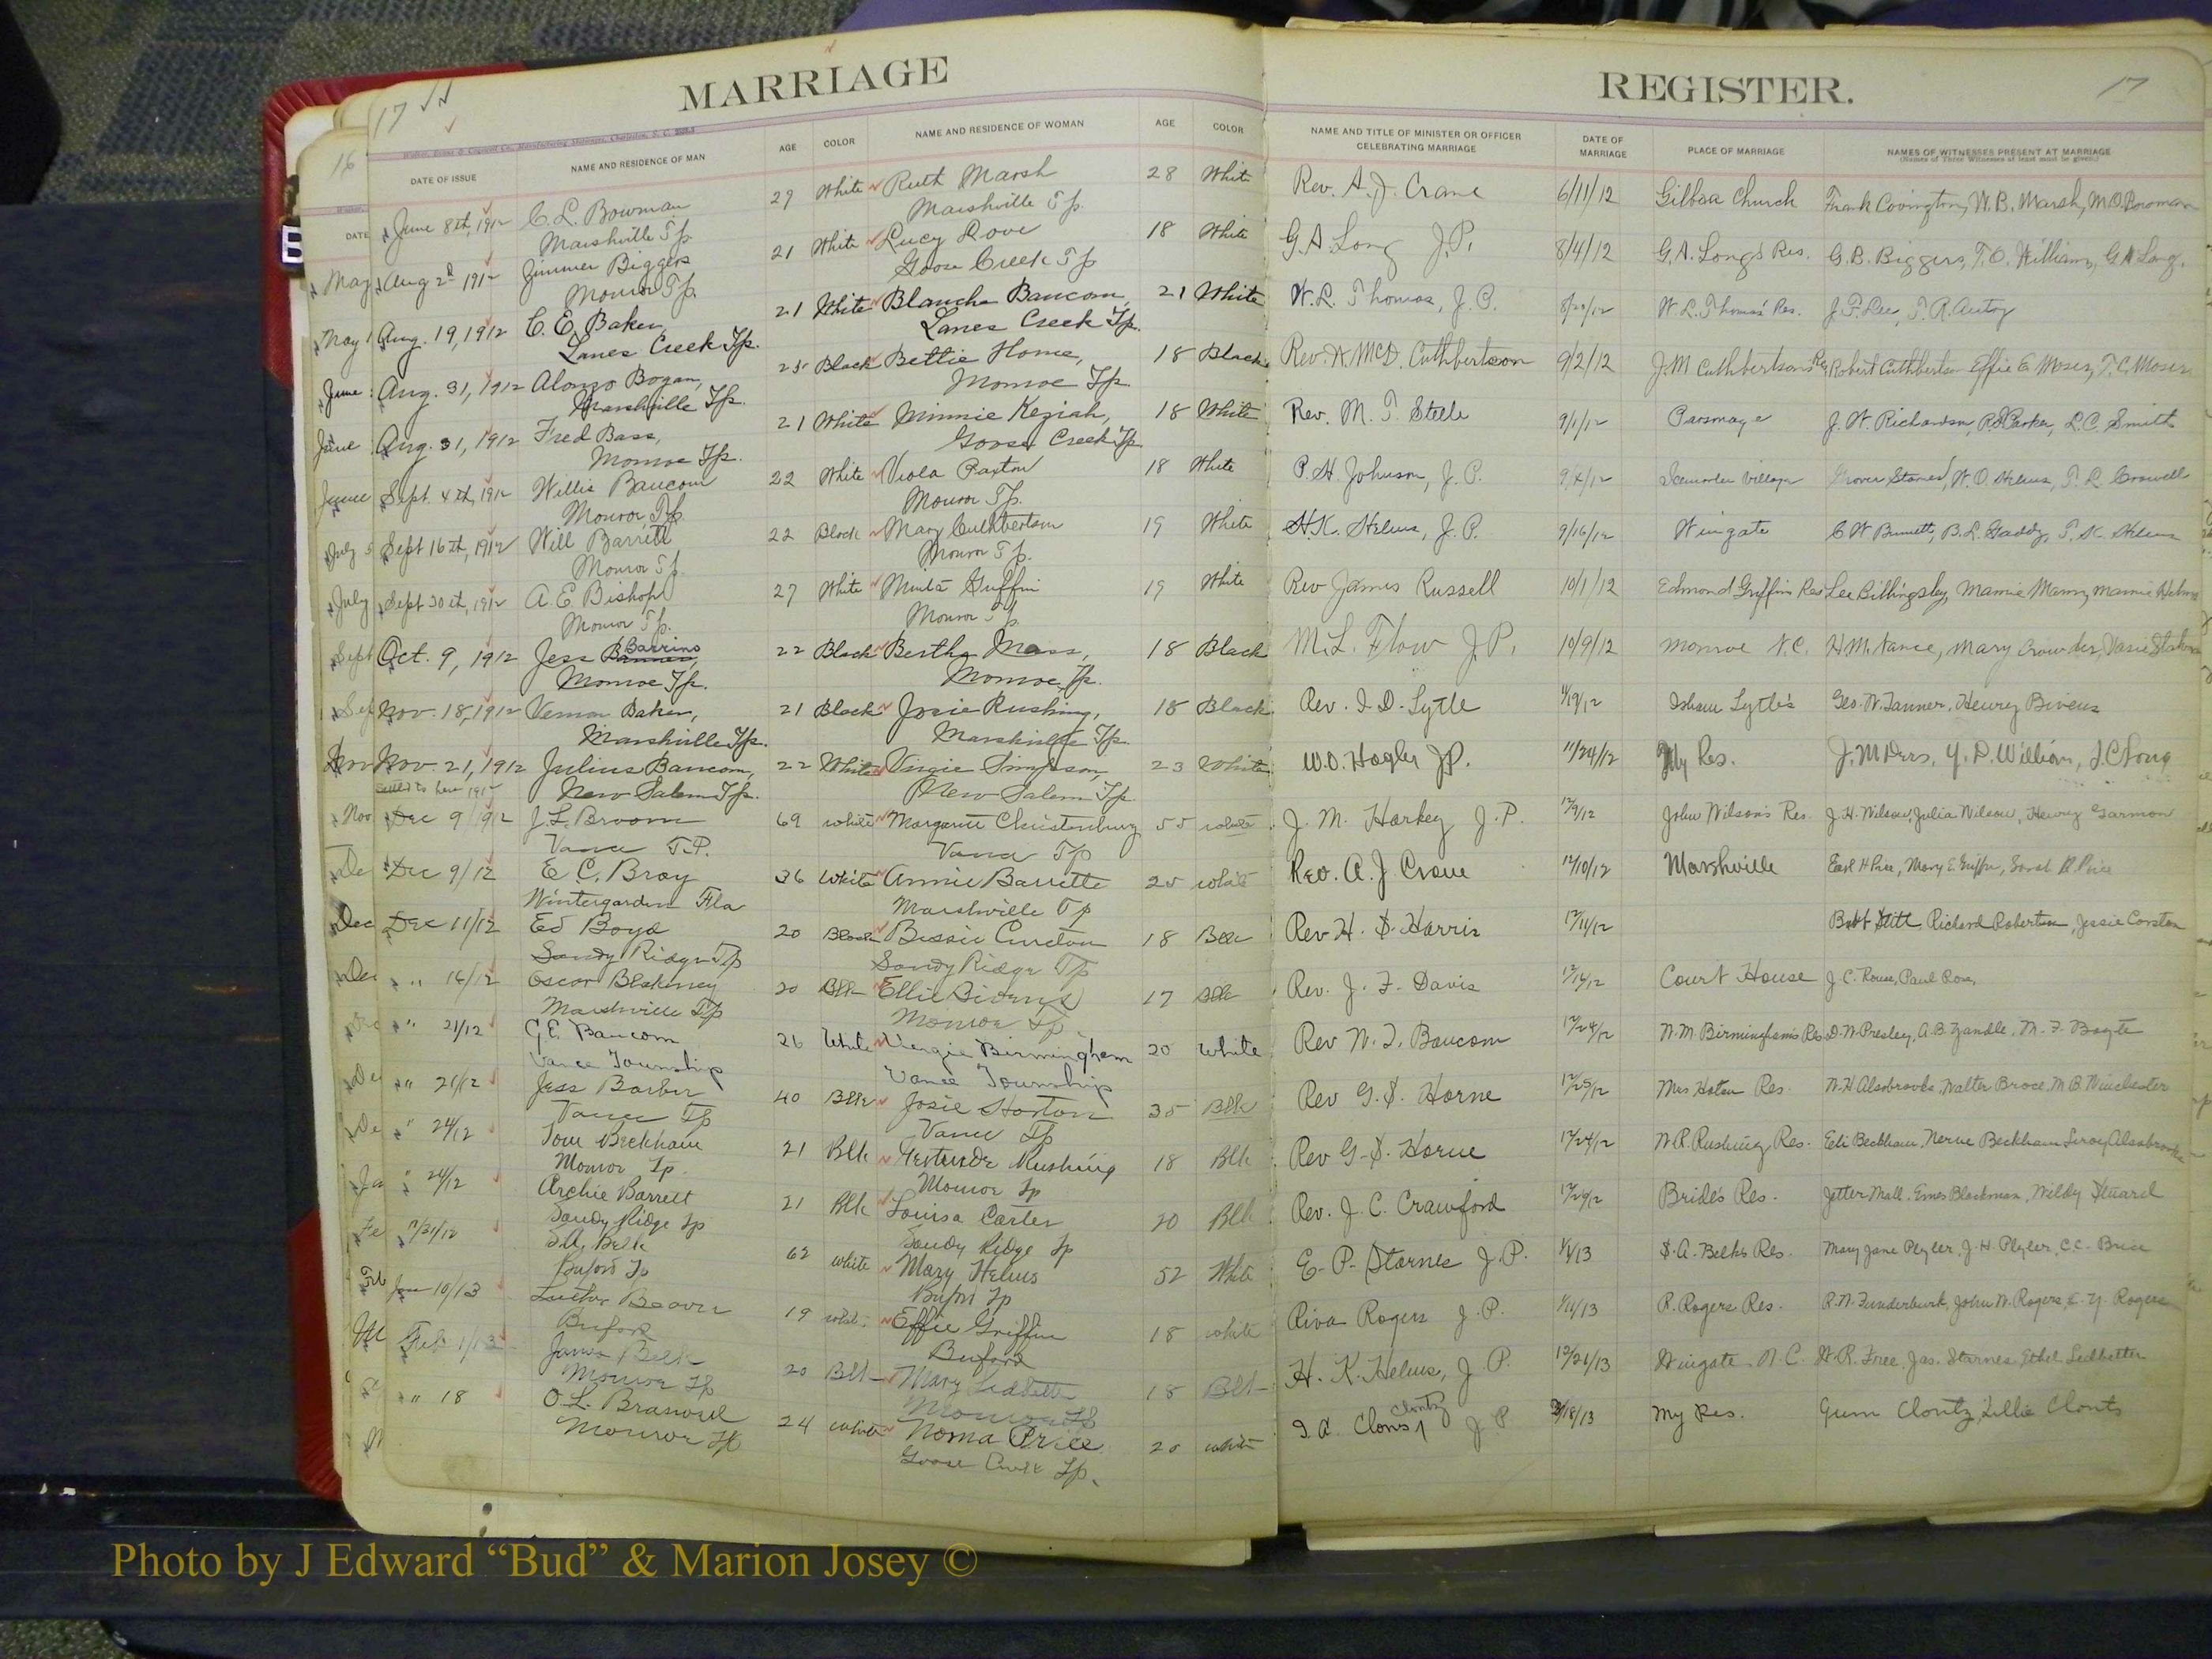 MARRIAGE REGISTER.
17 17
16
DATE OF ISSUE NAME AND RESIDENCE OF MAN AGE COLOR NAME AND RESIDENCE OF WOMAN AGE COLOR NAME AND TITLE OF MINISTER OR OFFICER CELEBRATING MARRIAGE DATE OF MARRIAGE PLACE OF MARRIAGE NAMES OF WITNESSES PRESENT AT MARRIAGE
(Names of Three Witnesses at least must be given.)
June 8th, 1912 C. L. Bowman 29 White Ruth Marsh 28 White Rev. A. J. Crane 6/11/12 Gilboa Church Frank Covington, W. B. Marsh, M.O. Bowman
Marshville Tp. Marshville Tp.
Aug 2d 1912 Zimmer Biggers 21 White Lucy Love 18 White G. A. Long J.P. 8/4/12 G. A. Long's Res. G. B. Biggers, T. O. Williams, G. A. Long.
Monroe Tp. Goose Creek Tp
Aug. 19, 1912 C. E. Baker, 21 White Blanche Baucom, 21 White W. L. Thomas, J. P. W. L. Thomas' Res. J. F. Lee,
Lanes Creek Tp. Lanes Creek Tp.
Aug. 31, 1912 Alonzo Bogan, 25 Black Bettie Horne, 18 Black Rev. A. McD. Cuthbertson 9/2/12 J. M Cuthbertson's Res Robert Cuthbertson Effie E Moser, T. C. Moser
Marshville Tp. Monroe Tp.
Aug. 31, 1912 Fred Bass, 21 White Minnie Keziah, 18 White Rev. M. T. Steele 9/1/12 Parsonage J. W. Richardson, Parker, L. C. Smith
Monroe Tp. Goose Creek Tp
Sept. 4th, 1912 Willis Baucom 22 White Viola Paxton 18 White P. H. Johnson, J. P. 9/4/12 Icemorlee Village Grover Starnes, W. O. Helms,
Monroe Tp. Monroe Tp.
Sept 16th, 1912 Will Barrett 22 Black Mary Cuthbertson 19 White H. K. Helms, J. P. 9/16/12 Wingate C W Burnett, B. L. Gaddy, T. K. Helms
Monroe Tp. Monroe Tp.
Sept 30th, 1912 A. E. Bishop 27 White Minta Griffin 19 White Rev James Russell 10/1/12 Edmond Griffin Res Lee Billingsley, Mamie Mann, Mamie Helms
Monroe Tp. Monroe Tp
Oct. 9, 1912 Jess Barrino 22 Black Bertha Mass, 18 Black M. L. Flow J. P. 10/9/12 Monroe N.C. H M. Nance, Mary Crowder,
Monroe Tp. Monroe Tp.
Nov. 18, 1912 Vernon Baker, 21 Black Josie Rushing, 18 Black Rev. I. D. Lytle 11/19/12 Isham Lytle's Geo. W. Tanner, Henry Bivens
Marshville Tp. Marshville Tp.
Nov. 21, 1912 Julius Baucom, 22 White Virgie Simpson, 23 White W. O. Hagler JP. 11/24/12 My Res. J. M Ders, Y. P. William, J. C Long
New Salem Tp. New Salem Tp.
Dec 9 1912 J. L. Broom 69 white Margaret Christenbury 55 white J. M. Harkey J. P. 12/9/12 John Wilson's Res. J. H. Wilson, Julia Wilson, Henry Garmon
Vance T.P. Vance Tp
Dec 9/12 E C. Bray 36 White Annie Barrette 25 white Rev. A. J Crane 12/10/12 Marshville Earl H Price, Mary E. Griffin, Sarah Price
Wintergarden Fla Marshville Tp
Dec 11/12 Ed Boyd 20 Black Bessie Cureton 18 Blk Rev H. S. Harris 12/11/12 Stitt Richard Robertson, Jessie Corston
Sandy Ridge Tp Sandy Ridge Tp
" 16/12 Oscar Blakeney 20 Blk Ellie Bivens 17 Blk Rev. J. F. Davis 12/16/12 Court House J. C. Rouse, Paul Rose,
Marshville Tp Monroe Tp.
" 21/12 C. E. Baucom 26 White Vergie Birmingham 20 White Rev N. T. Baucom 12/24/12 N. M Birmingham's Res. D. W. Presley, A. B. Yandle, M. F. Boyte
Vance Township Vance Township
" 21/12 Jess Barber 40 Blk Josie Horton 35 Blk Rev G. S. Horne 12/25/12 Mrs Res. W. H Alsobrooks, Walter Brace, M. B. Winchester
Vance Tp Vance Tp
" 24/12 Tom Beckham 21 Blk Gertrude Rushing 18 Blk Rev G. S. Horne 12/24/12 W. R. Rushing Res. Eli Beckham, Nerve Beckham Leroy Alsobrooks
Monroe Tp. Monroe Tp
" 24/12 Archie Barrett 21 Blk Louisa Carter 20 Blk Rev. J. C. Crawford 12/29/12 Bride's Res. Jetter Mall, Ernes Blackman, Wildy Stuard
Sandy Ridge Tp Sandy Ridge Tp
12/31/12 S. A. Belk 62 white Mary Helms 52 White E. P. Starnes J. P. 1/1/13 S. A. Belk's Res. Mary Jane Plyler, J. H. Plyler, C. C. Brice
Buford Tp Buford Tp
Jan 10/13 Luther Beaver 19 white Effie Griffin 18 white Riva Rogers J. P. 1/11/13 R. Rogers Res. R. W. Funderburk, John W. Rogers, C. Y. Rogers
Buford Buford
Feb 1/13 James Belk 20 Blk Mary Ledbetter 18 Blk H. K. Helms, J P. 12/21/13 Wingate N. C. H. R. Free, Jas. Starnes, Ethel Ledbetter
Monroe Tp Monroe Tp
" 18 O. L. Braswell 24 white Noma Price 20 white I. A. Clontz J P 2/18/13 My Res. Gum Clontz, Lillie Clontz
Monroe Tp Goose Creek Tp.
Photo by J Edward “Bud” & Marion Josey ©